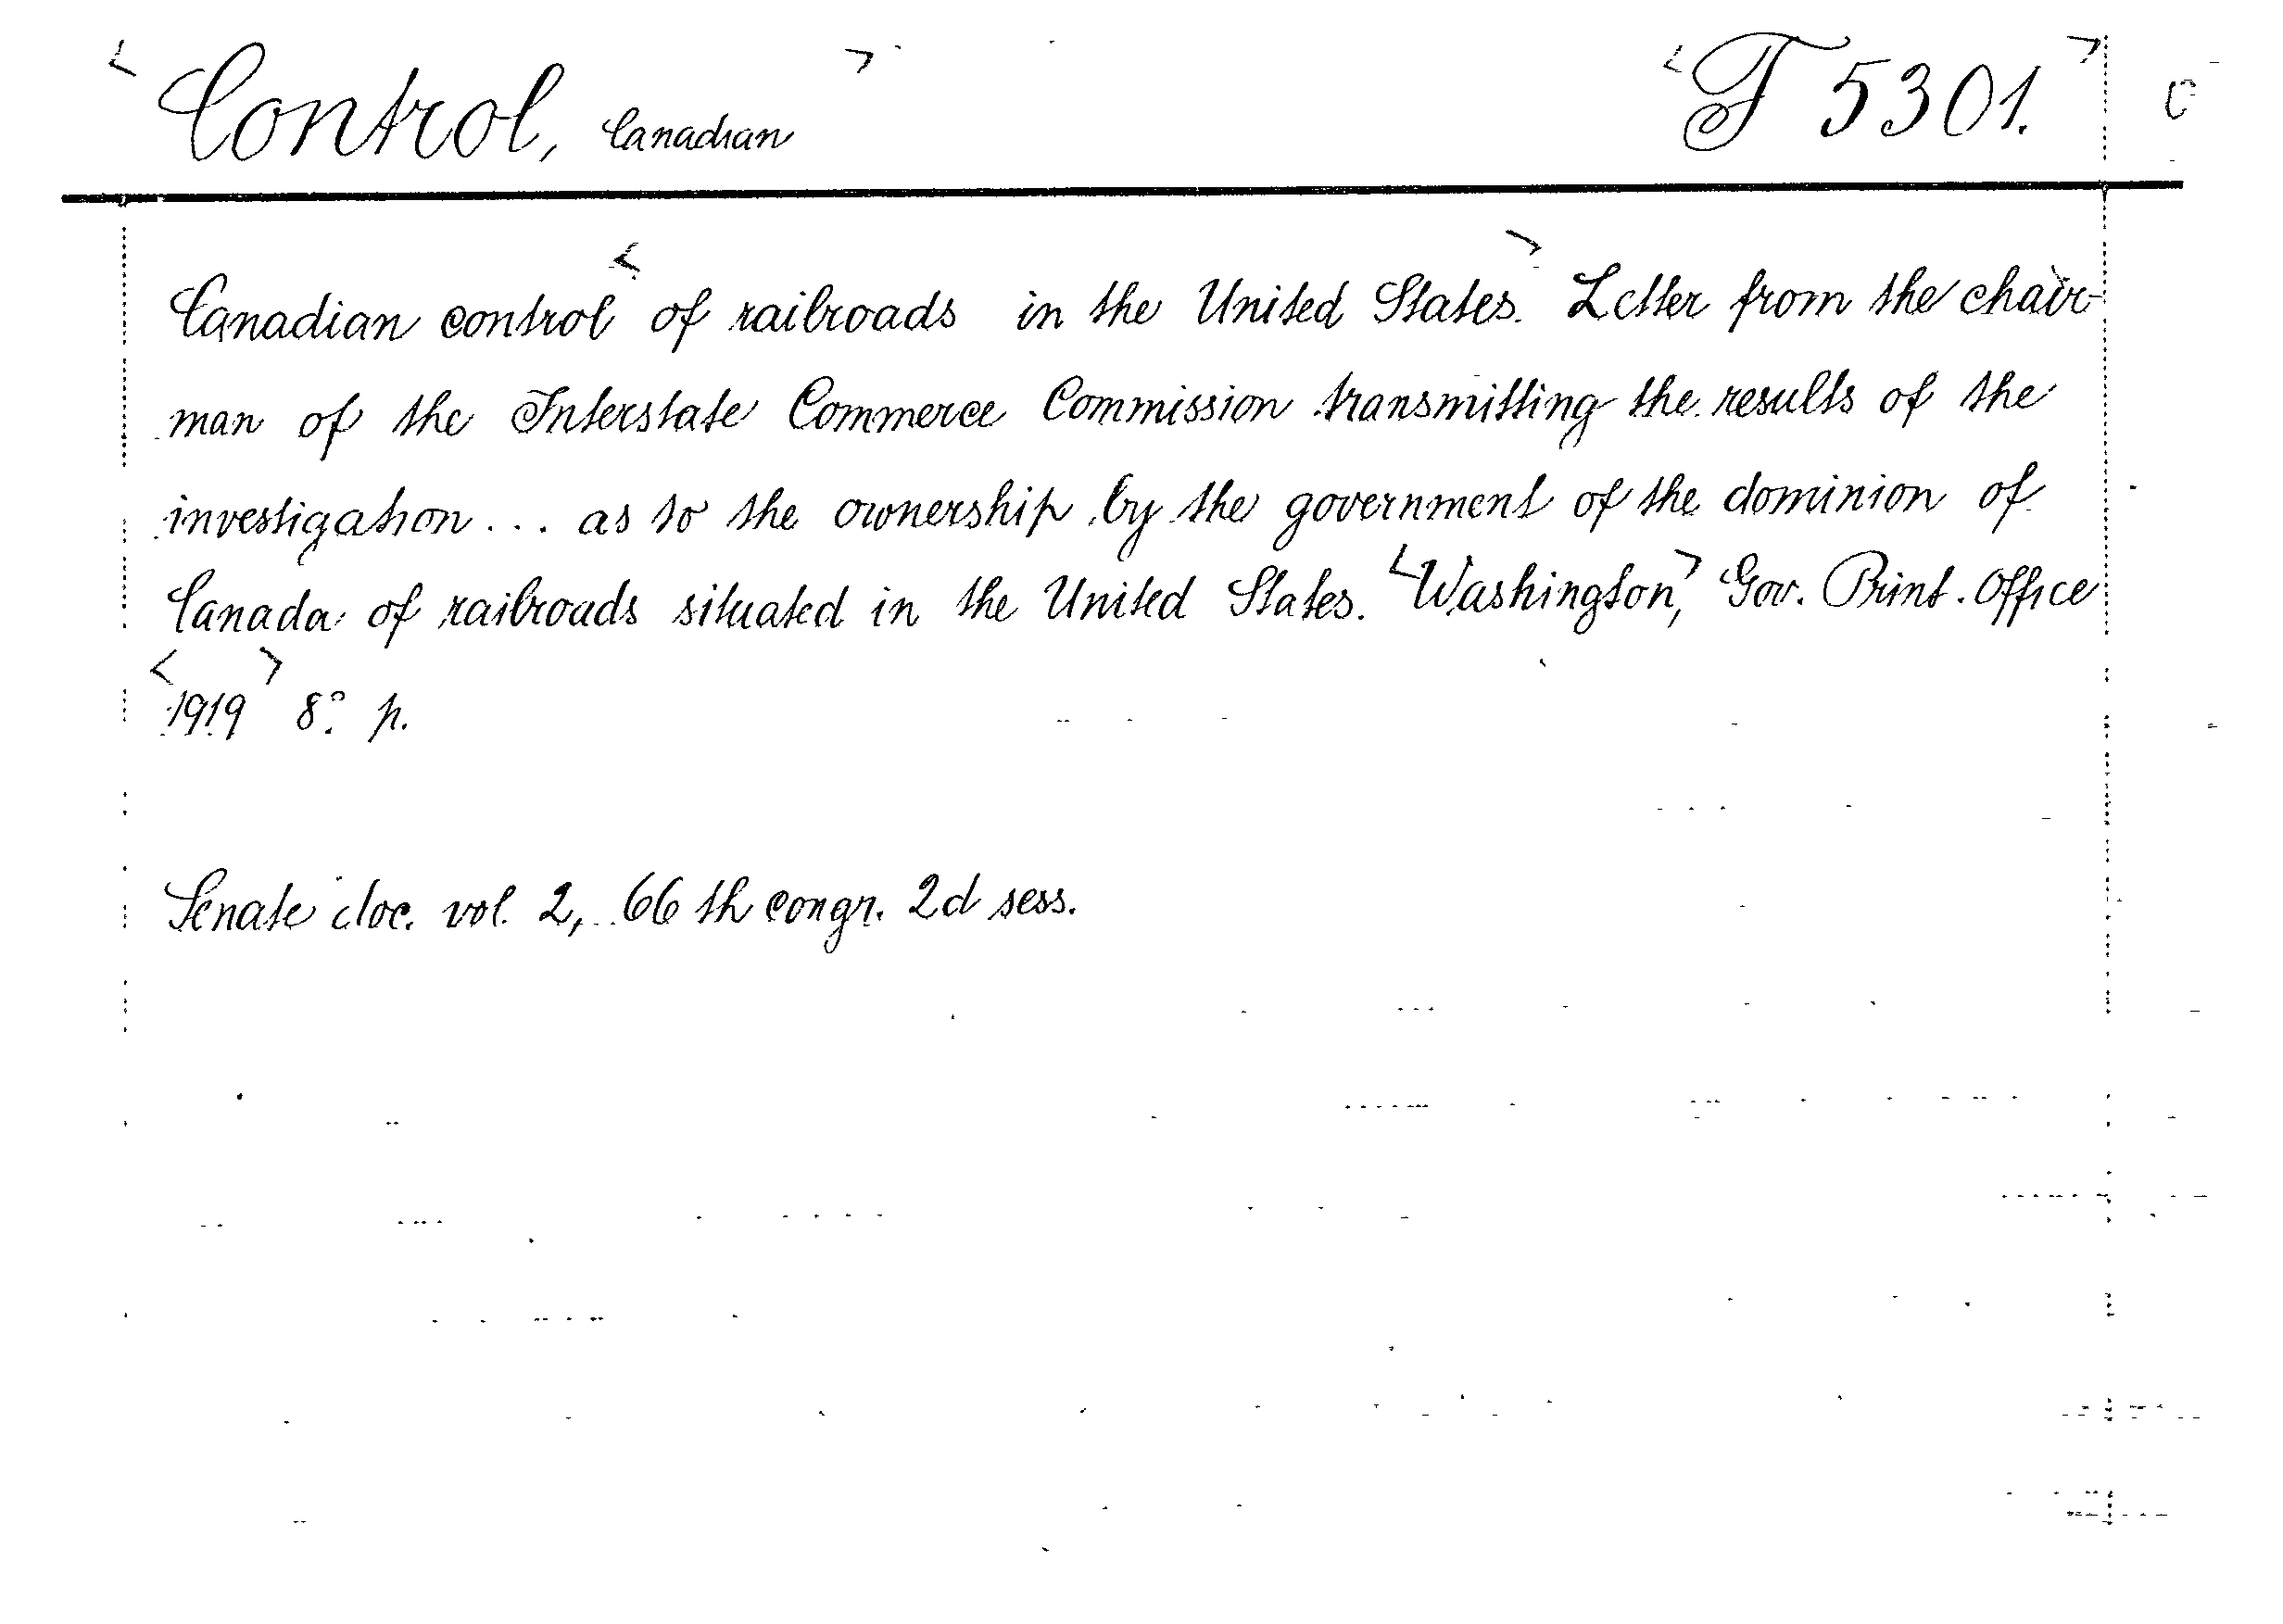 Control, Canadian T 5301.
Canadian control of railroads in the United States. Letter from the chair-
man of the Interstate Commerce Commission transmitting the results of the
investigation... as to the ownership by the government of the dominion of
Canada of railroads situated in the United States. Washington, Gov. Print. Office
1919 8° p.
Senate doc. vol. 2, 66 th congr. 2d sess.